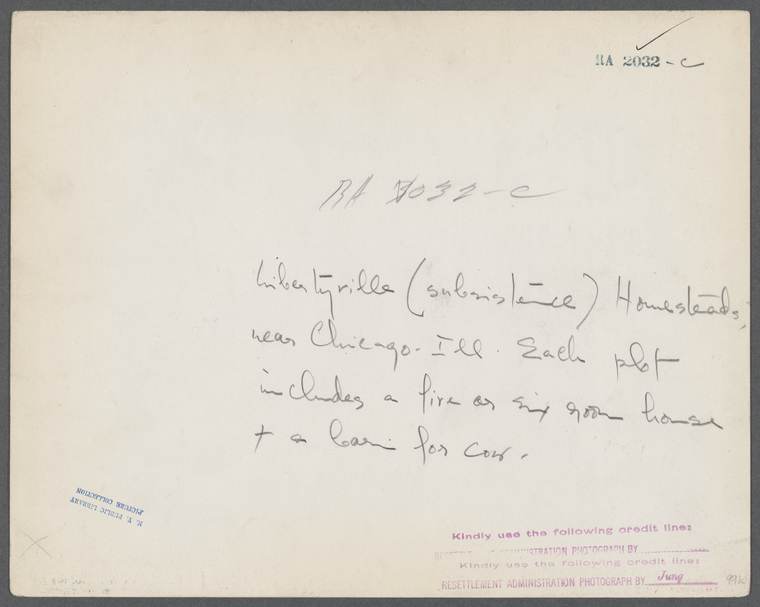 RA 2032 - C
RA 2032 - C
Libertyville (subsistence) Homesteads,
near Chicago - Ill. Each plot
includes a five or six room house
+ a barn for cow.
N. Y. PUBLIC LIBRARY
PICTURE COLLECTION
Kindly use the following credit line:
ADMINISTRATION PHOTOGRAPH BY
Kindly use the following credit line:
RESETTLEMENT ADMINISTRATION PHOTOGRAPH BY Jung